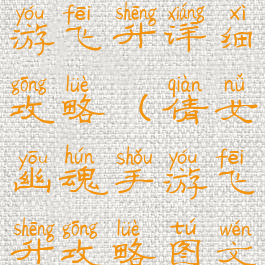 yóu fēi shēng xiáng xì
游飞升详细
gōng lüè ( qiàn nǚ
攻略(倩女
yōu hún shǒu yóu fēi
幽魂手游飞
shēng gōng lüè tú wén
升攻略图文